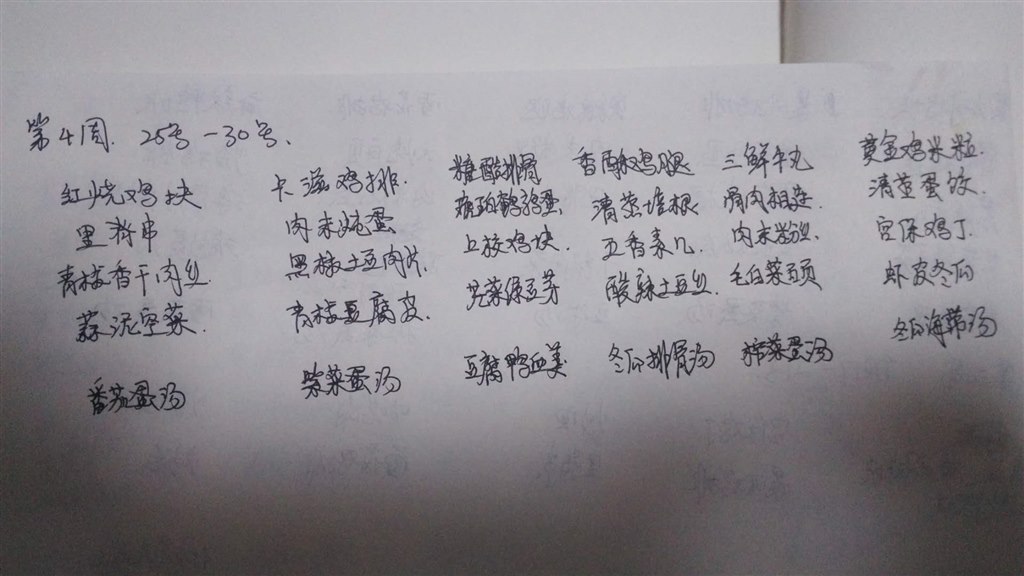 第4周. 25号-30号、
红烧鸡块 卡滋鸡排. 糖醋排骨 香酥鸡腿 三鲜牛丸 黄金鸡米粒.
里脊串 肉末炖蛋 鹌鹑蛋 清蒸 骨肉相连 清蒸蛋饺
青椒香干肉丝 黑椒土豆肉片 上校鸡块. 五香素几 肉末粉丝. 宫保鸡丁
蒜泥空菜. 青椒豆腐皮 芹菜绿豆芽 酸辣土豆丝 毛白菜 虾皮冬瓜
番茄蛋汤 紫菜蛋汤 豆腐鸭血羹 冬瓜排骨汤 榨菜蛋汤 冬瓜海带汤